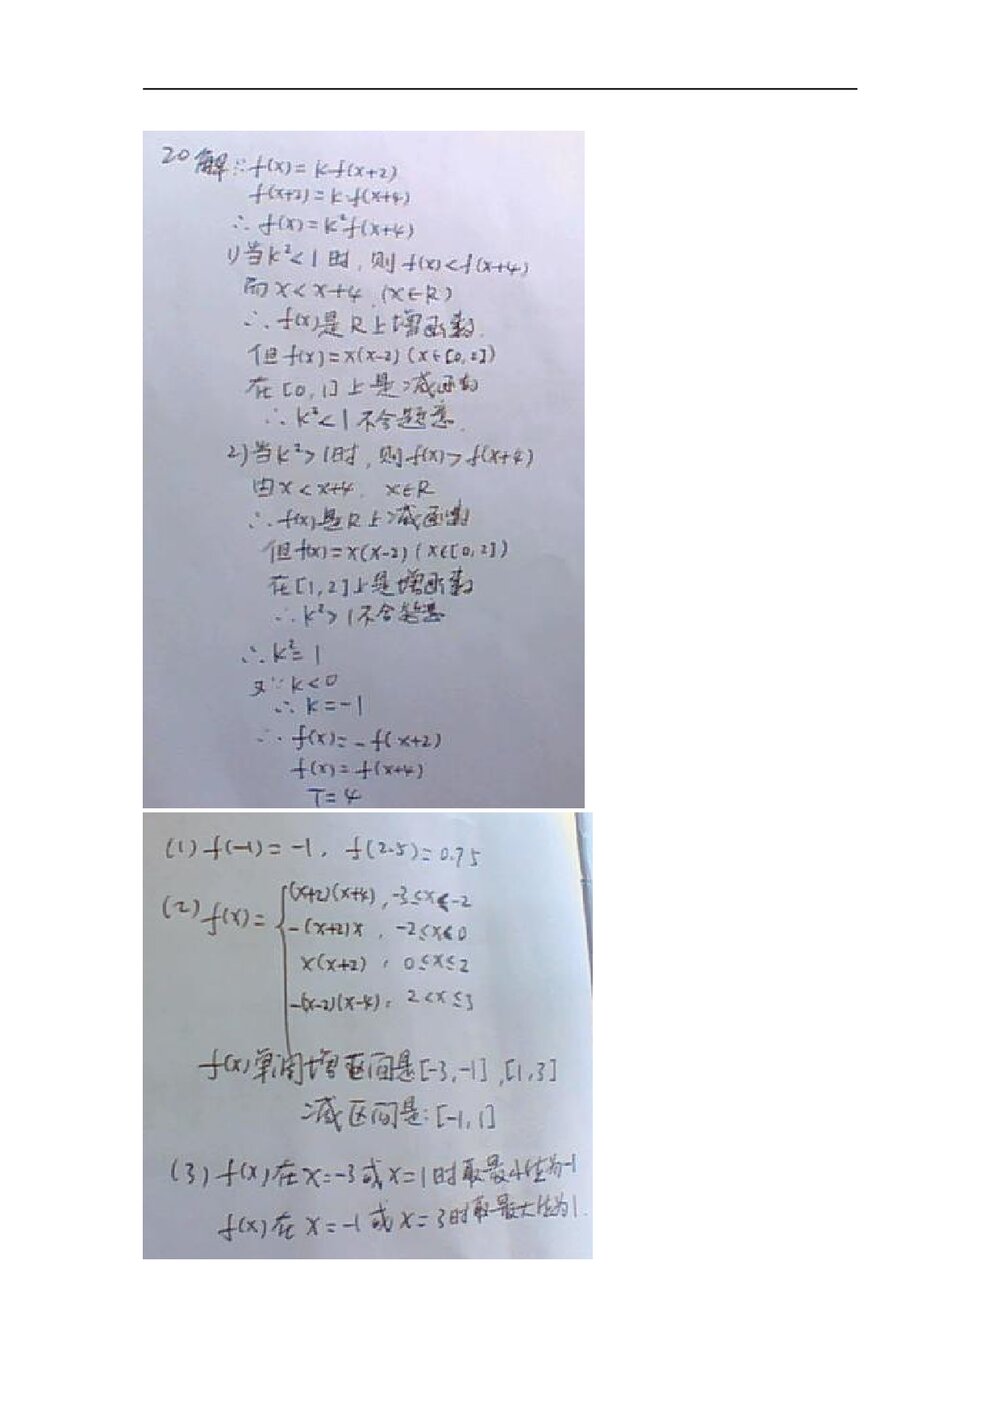 20解∵f(x)=k·f(x+2)
f(x+2)=k·f(x+4)
∴f(x)=k²f(x+4)
1)当k²<1时,则f(x)<f(x+4)
而x<x+4,(x∈R)
∴f(x)是R上增函数.
但f(x)=x(x-2)(x∈[0,2])
在[0,1]上是减函数
∴k²<1不合题意.
2)当k²>1时,则f(x)>f(x+4)
由x<x+4, x∈R
∴f(x)是R上减函数
但f(x)=x(x-2)(x∈[0,2])
在[1,2]上是增函数
∴k²>1不合题意
∴k²=1
又∵k<0
∴k=-1
∴f(x)=-f(x+2)
f(x)=f(x+4)
T=4
(1)f(-1)=-1, f(2.5)=0.75
(2)f(x)=
(x+2)(x+4),-3≤x<-2
-(x+2)x, -2≤x<0
x(x+2), 0≤x≤2
-(x-2)(x-4), 2<x≤3
f(x)单调增区间是[-3,-1],[1,3]
减区间是:[-1,1]
(3)f(x)在x=-3或x=1时取最小值为-1
f(x)在x=-1或x=3时取最大值为1.